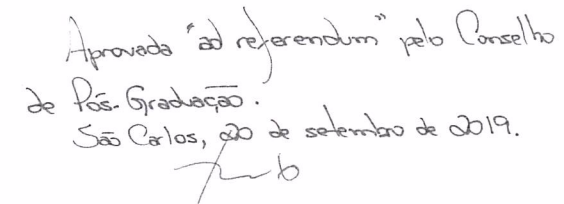 Aprovada "ad referendum" pelo Conselho
de Pós-Graduação.
São Carlos, 20 de setembro de 2019.